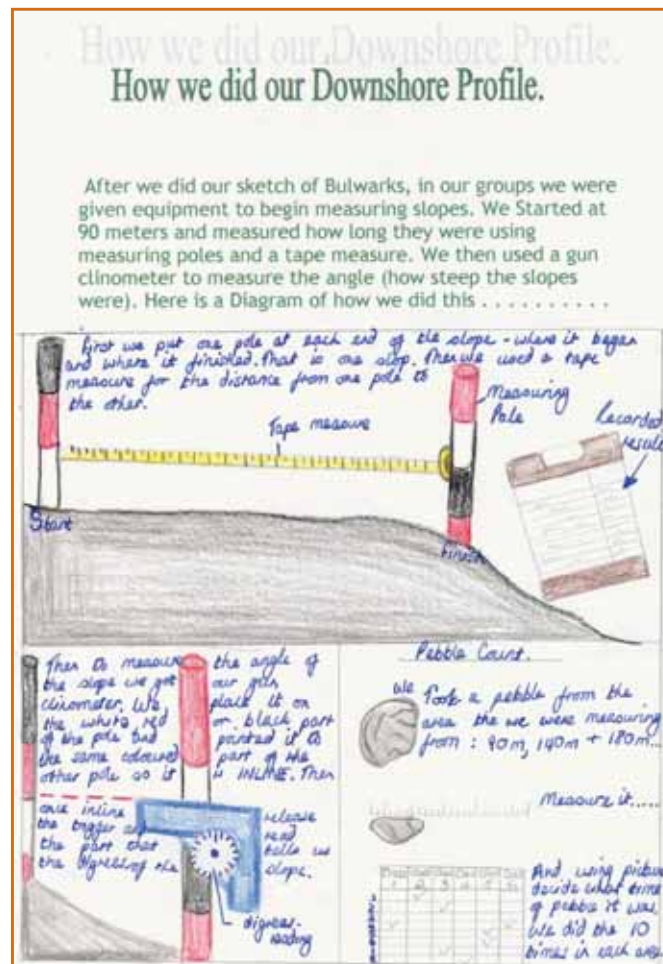 How we did our Downshore Profile.
How we did our Downshore Profile.
After we did our sketch of Bulwarks, in our groups we were
given equipment to begin measuring slopes. We Started at
90 meters and measured how long they were using
measuring poles and a tape measure. We then used a gun
clinometer to measure the angle (how steep the slopes
were). Here is a Diagram of how we did this . . . . . . . . . .
First we put one pole at each end of the slope - where it began
and where it finished. That is one slop. Then we used a tape
measure for the distance from one pole to
the other.
Tape measure
Measuring
Pole
Recorded
result
Start
Finish
Then to measure the angle of
the slope we got our gun
clinometer. We place it on
the white, red or black part
of the pole and pointed it to
the same coloured part of the
other pole so it is INLINE. Then
once inline release
the trigger and read
the part that tells us
the digress of the slope.
digress
reading
Pebble Count.
We Took a pebble from the
area the we were measuring
from : 90m, 140m + 180m...
Measure it.....
1 2 3 4 5 6
And using picture
decide what
of pebble it was
We did the 10
times in each area